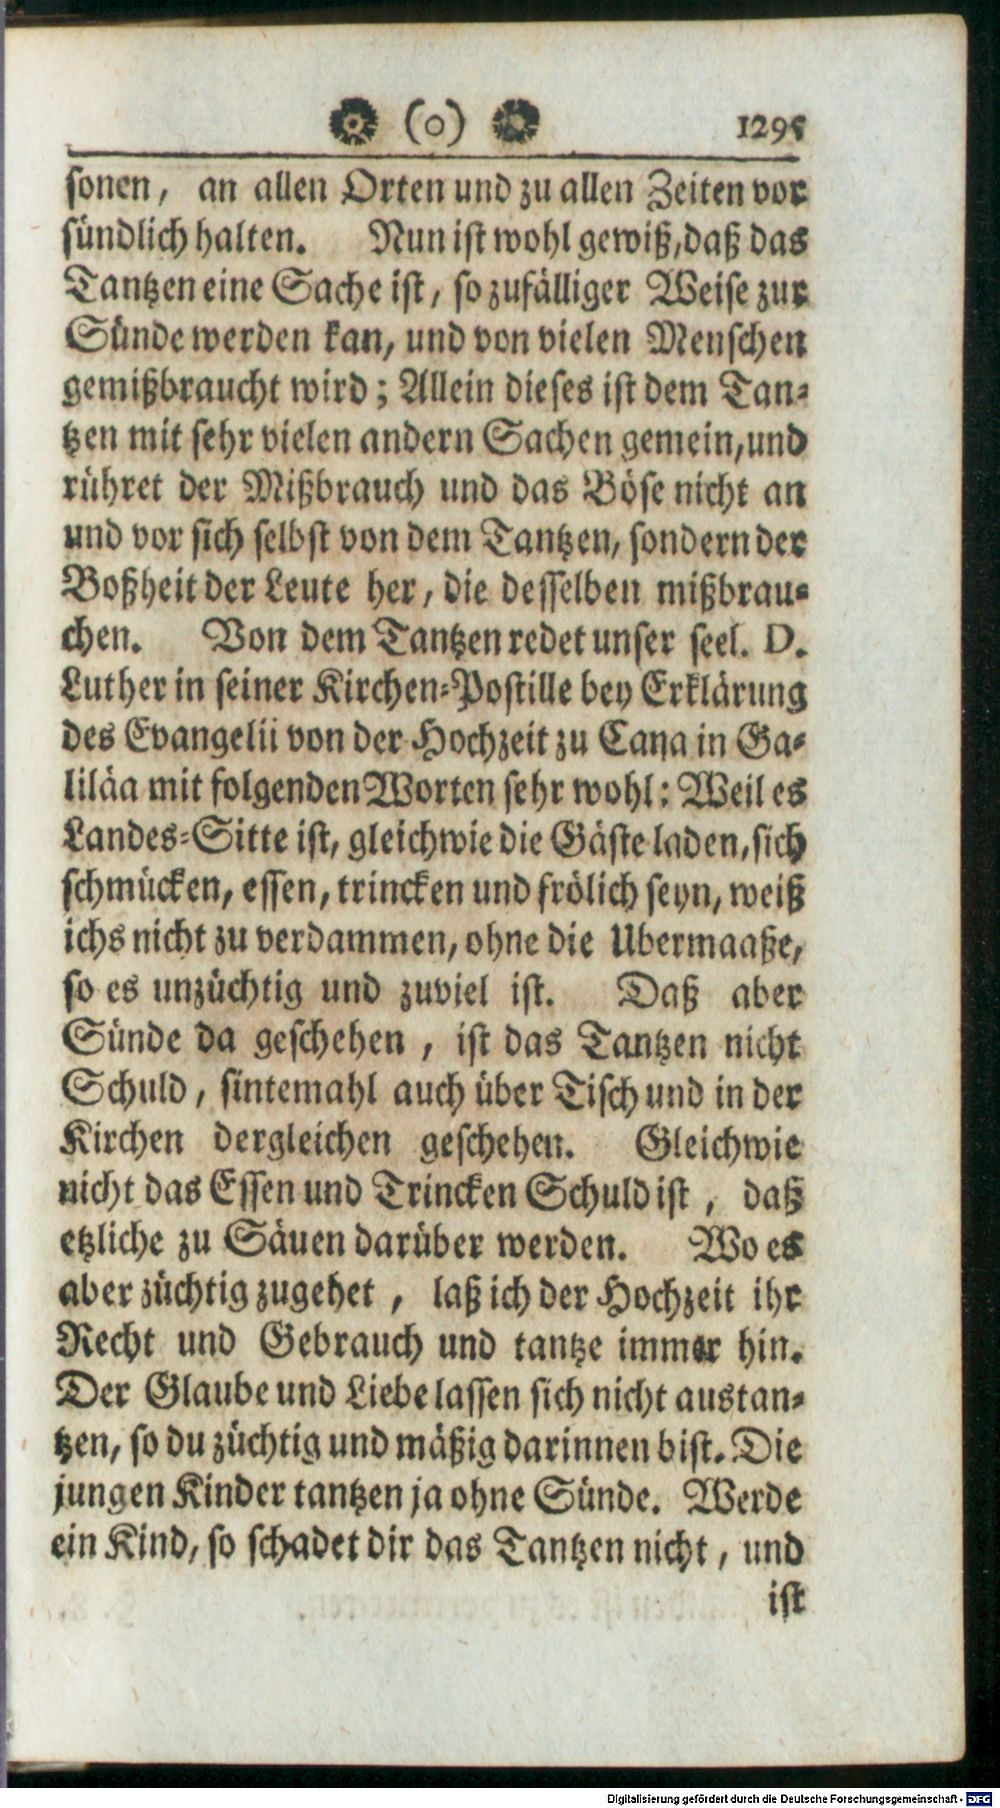 (o) 1295
sonen, an allen Orten und zu allen Zeiten vor
sündlich halten. Nun ist wohl gewiß, daß das
Tantzen eine Sache ist, so zufälliger Weise zur
Sünde werden kan, und von vielen Menschen
gemißbraucht wird; Allein dieses ist dem Tan-
tzen mit sehr vielen andern Sachen gemein, und
rühret der Mißbrauch und das Böse nicht an
und vor sich selbst von dem Tantzen, sondern der
Boßheit der Leute her, die desselben mißbrau-
chen. Von dem Tantzen redet unser seel. D.
Luther in seiner Kirchen-Postille bey Erklärung
des Evangelii von der Hochzeit zu Cana in Ga-
liläa mit folgenden Worten sehr wohl: Weil es
Landes-Sitte ist, gleichwie die Gäste laden, sich
schmücken, essen, trincken und frölich seyn, weiß
ichs nicht zu verdammen, ohne die Ubermaaße,
so es unzüchtig und zuviel ist. Daß aber
Sünde da geschehen, ist das Tantzen nicht
Schuld, sintemahl auch über Tisch und in der
Kirchen dergleichen geschehen. Gleichwie
nicht das Essen und Trincken Schuld ist, daß
etzliche zu Säuen darüber werden. Wo es
aber züchtig zugehet, laß ich der Hochzeit ihr
Recht und Gebrauch und tantze immer hin.
Der Glaube und Liebe lassen sich nicht austan-
tzen, so du züchtig und mäßig darinnen bist. Die
jungen Kinder tantzen ja ohne Sünde. Werde
ein Kind, so schadet dir das Tantzen nicht, und
ist
Digitalisierung gefördert durch die Deutsche Forschungsgemeinschaft - DFG